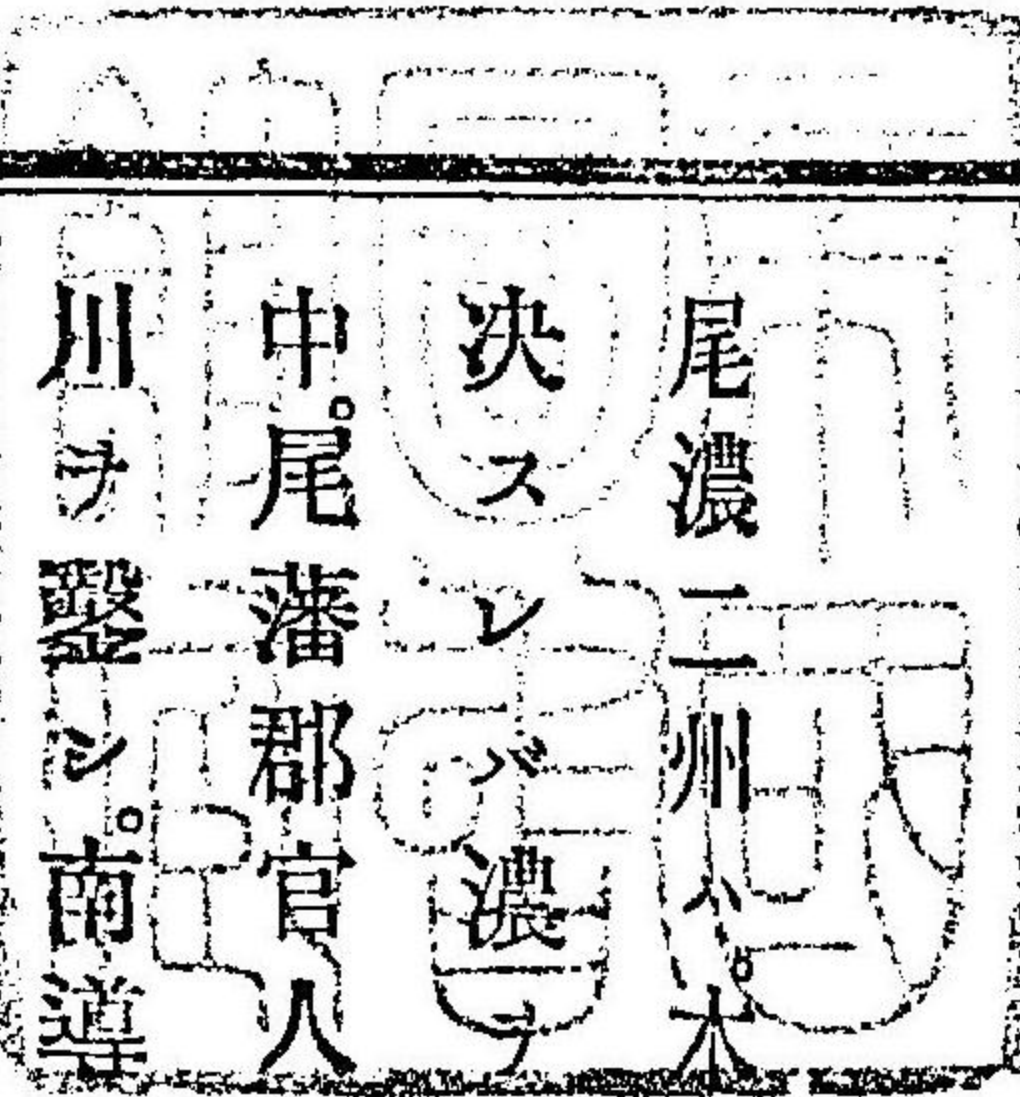 尾濃二州ハ。木
决スレバ濃ノ
中。尾藩郡官人
川ヲ鑿シ。南導